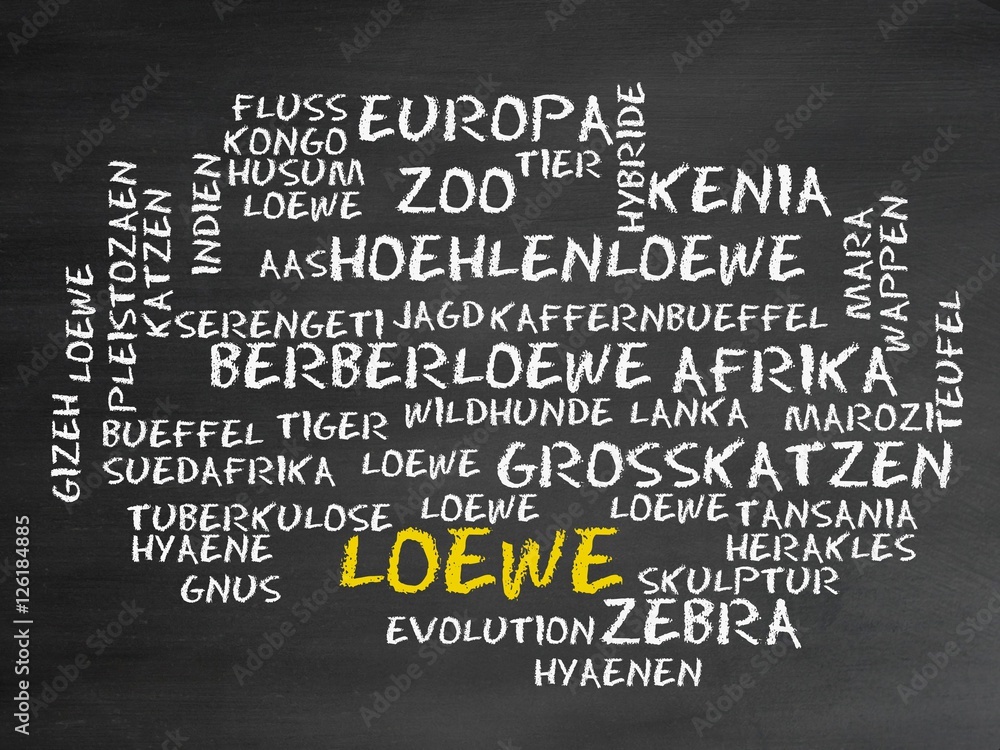 FLUSS
EUROPA
HYBRIDE
KONGO
TIER
HUSUM
ZOO
KENIA
LOEWE
INDIEN
PLEISTOZAEN
KATZEN
MARA
WAPPEN
AAS
HOEHLENLOEWE
SERENGETI
JAGD
KAFFERNBUEFFEL
GIZEH LOEWE
BERBERLOEWE
AFRIKA
TEUFFEL
BUEFFEL
TIGER
WILDHUNDE
LANKA
MAROZI
SUEDAFRIKA
LOEWE
GROSSKATZEN
TUBERKULOSE
LOEWE
LOEWE
TANSANIA
HYAENE
LOEWE
HERAKLES
GNUS
SKULPTUR
EVOLUTION
ZEBRA
HYAENEN
Adobe Stock | #126184885